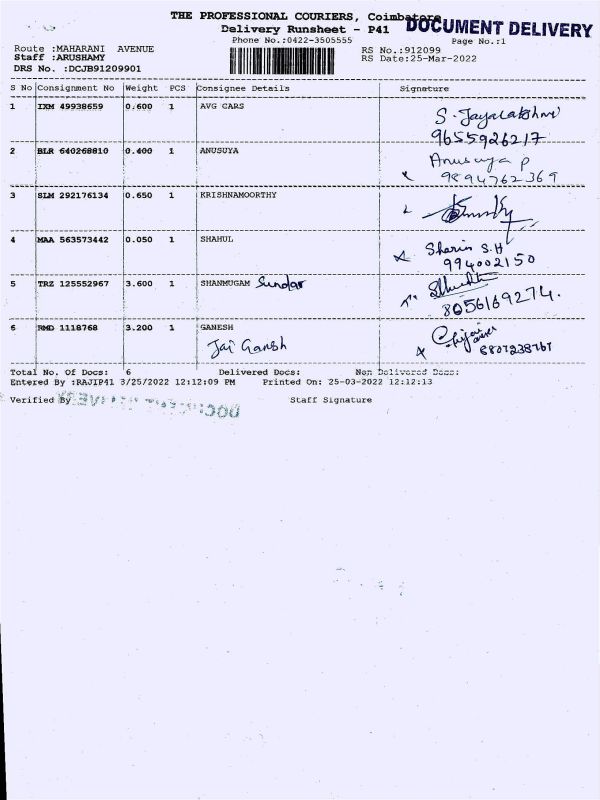 THE PROFESSIONAL COURIERS, Coimbatore
DOCUMENT DELIVERY
Delivery Runsheet - P41
Phone No.:0422-3505555
Page No.:1
Route :MAHARANI AVENUE
RS No.:912099
Staff :ARUSHAMY
RS Date:25-Mar-2022
DRS No. :DCJB91209901
S No Consignment No Weight PCS Consignee Details Signature
1 IXM 49938659 0.600 1 AVG CARS
S. Jayalakshmi
9655926217
2 BLR 640268810 0.400 1 ANUSUYA
Anusuya P
9894762369
3 SLM 292176134 0.650 1 KRISHNAMOORTHY
4 MAA 563573442 0.050 1 SHAHUL
Sharin S.H
994002150
5 TRZ 125552967 3.600 1 SHANMUGAM Sundar
8056169274.
6 RMD 1118768 3.200 1 GANESH
Jai Ganesh
Total No. Of Docs: 6 Delivered Docs: Non Delivered Docs:
Entered By :RAJIP41 3/25/2022 12:12:09 PM Printed On: 25-03-2022 12:12:13
Verified By Staff Signature